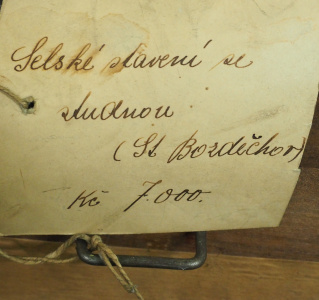 Selské stavení se
studnou
(St Bozděchov)
Kč 7.000.